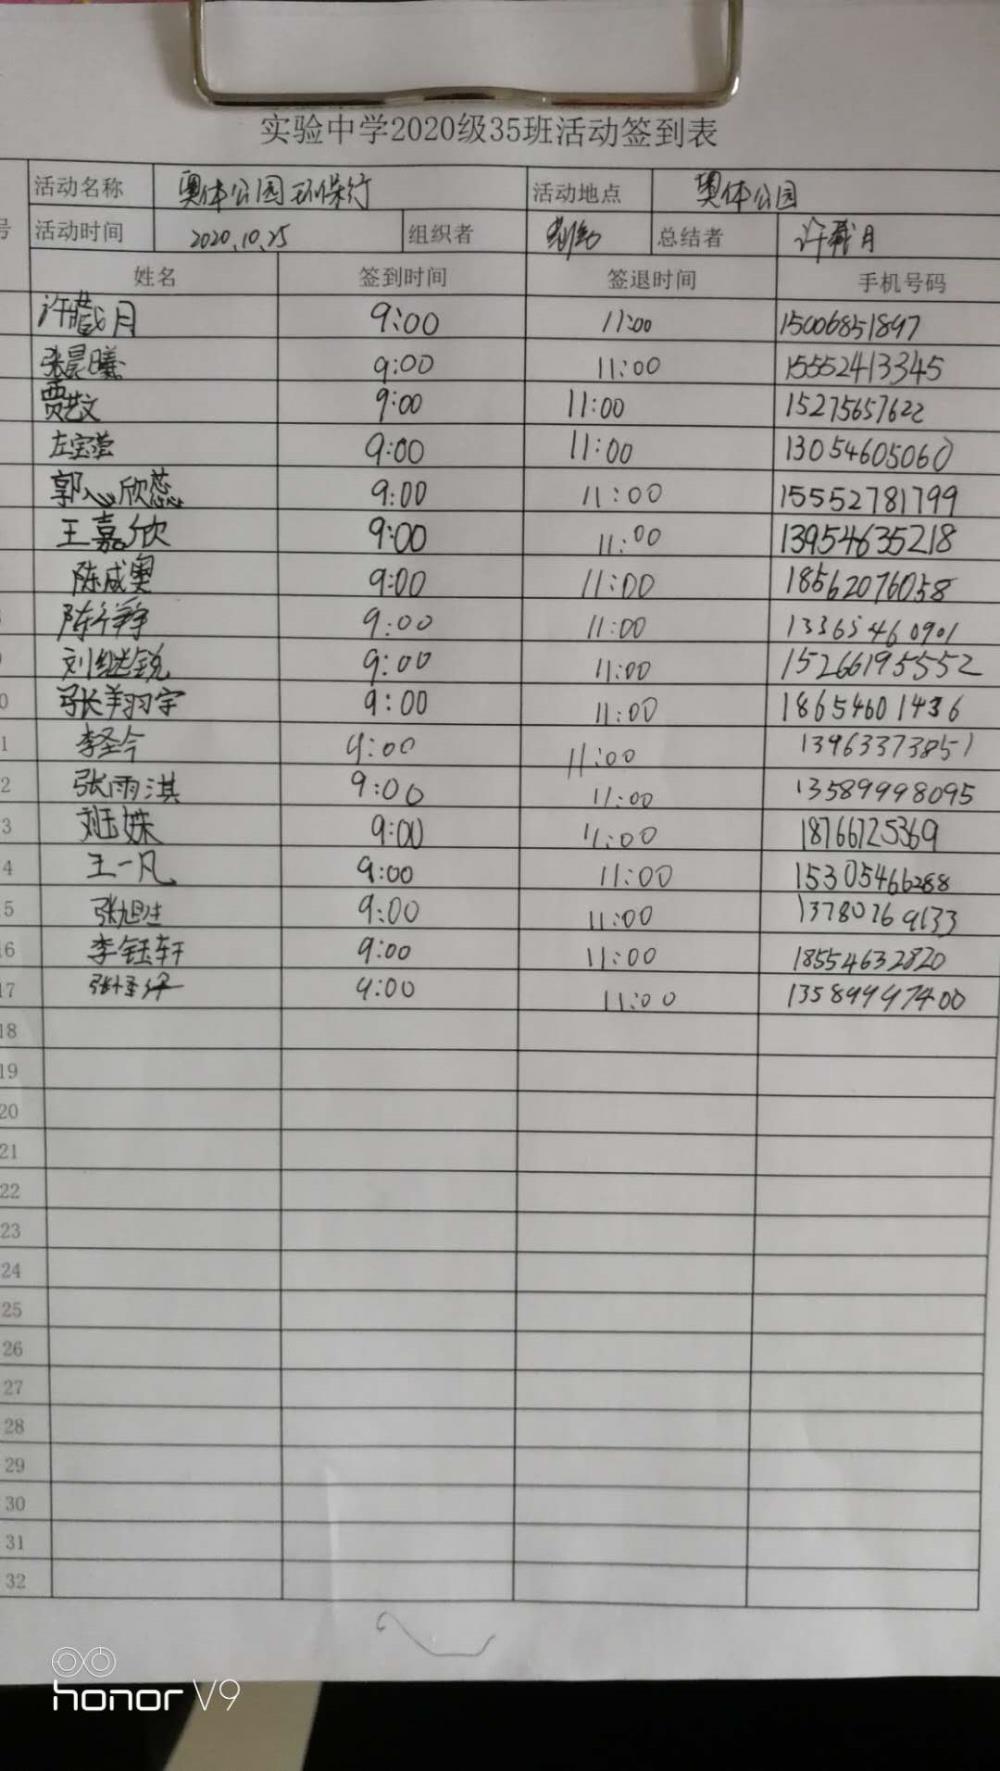 实验中学2020级35班活动签到表
活动名称 奥体公园环保行 活动地点 奥体公园
号 活动时间 2020.10.25 组织者 总结者 许藏月
姓名 签到时间 签退时间 手机号码
许藏月 9:00 11:00 15006851897
张晨曦 9:00 11:00 15552413345
贾艺文 9:00 11:00 15275657622
左宝莹 9:00 11:00 13054605060
郭心欣蕊 9:00 11:00 15552781799
王嘉欣 9:00 11:00 13954635218
陈成奥 9:00 11:00 18562076058
陈行翀 9:00 11:00 13365460901
刘继锐 9:00 11:00 15266195552
0 张翔宇 9:00 11:00 18654601436
1 李圣今 9:00 11:00 13963373851
2 张雨淇 9:00 11:00 13589998095
3 刘玉姝 9:00 11:00 18766725369
4 王一凡 9:00 11:00 15305466288
5 张旭 9:00 11:00 13780769133
6 李钰轩 9:00 11:00 18554632820
17 9:00 11:00 13589997400
18
19
20
21
22
23
24
25
26
27
28
29
30
31
32
honor V9